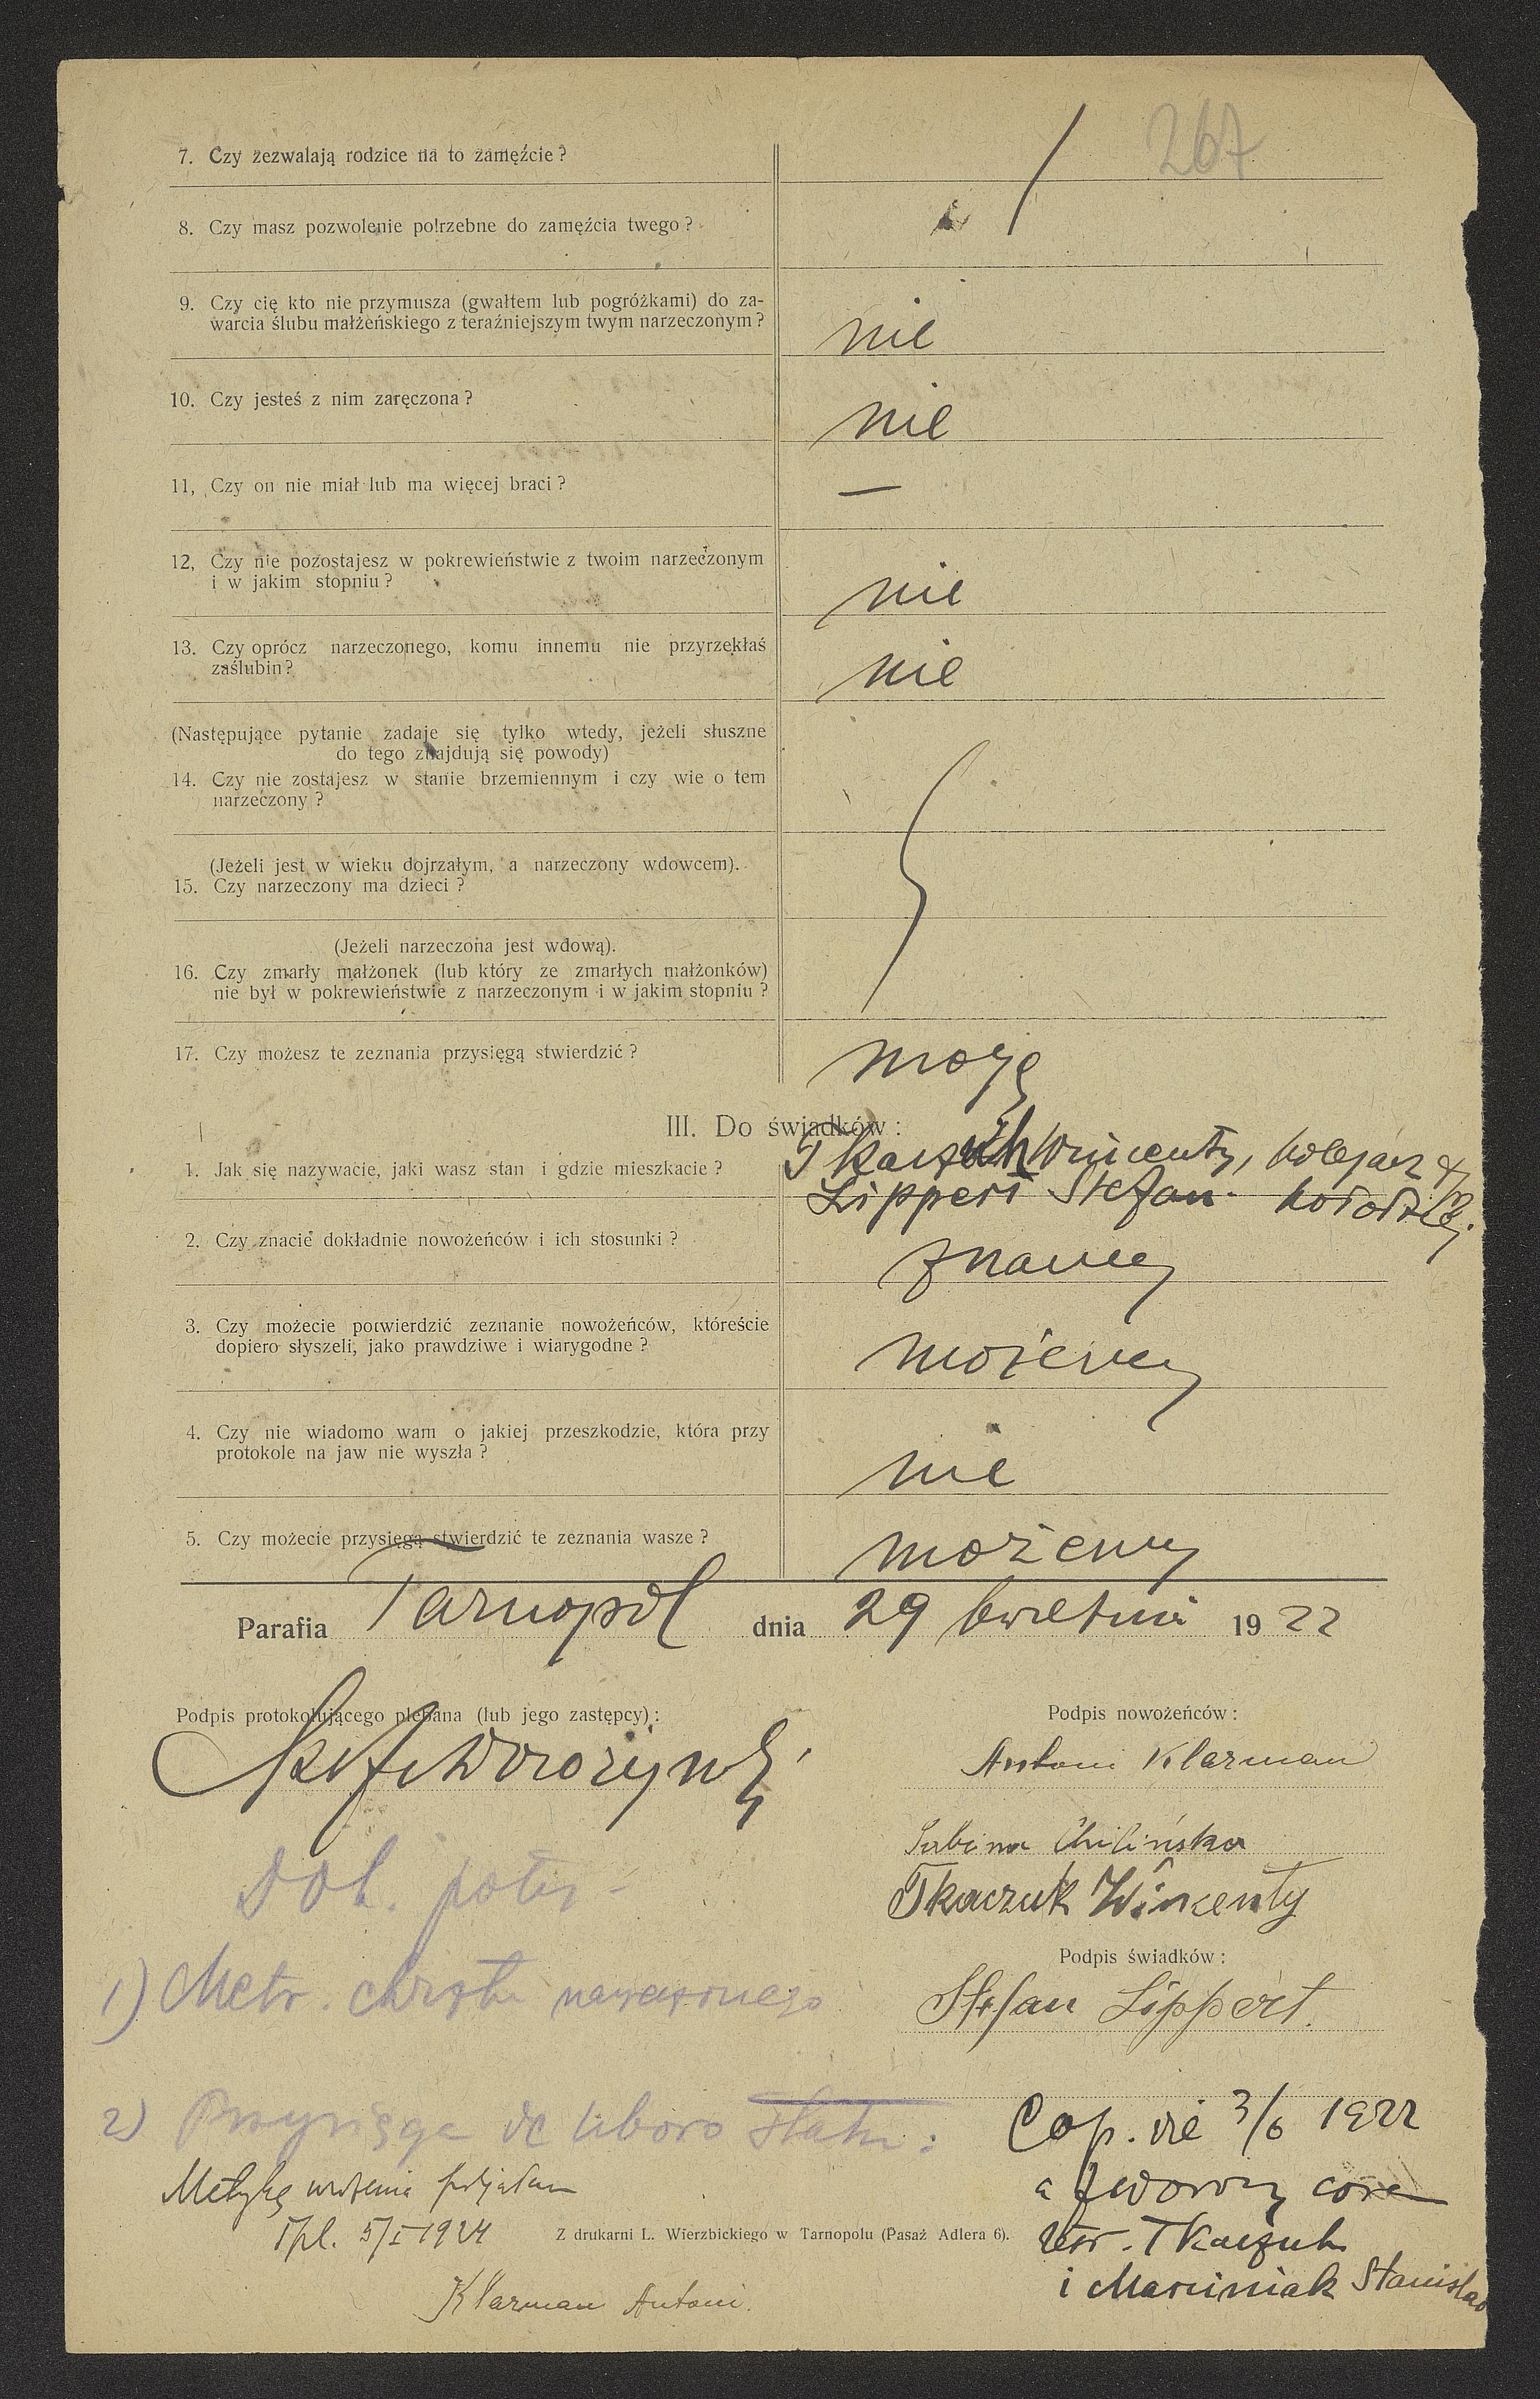 267
7. Czy zezwalają rodzice na to zamęźcie?
8. Czy masz pozwolenie potrzebne do zamęźcia twego?
9. Czy cię kto nie przymusza (gwałtem lub pogróżkami) do za-
warcia ślubu małżeńskiego z teraźniejszym twym narzeczonym?
nie
10. Czy jesteś z nim zaręczona?
nie
11, Czy on nie miał lub ma więcej braci?
—
12, Czy nie pozostajesz w pokrewieństwie z twoim narzeczonym
i w jakim stopniu?
nie
13. Czy oprócz narzeczonego, komu innemu nie przyrzekłaś
zaślubin?
nie
(Następujące pytanie zadaje się tylko wtedy, jeżeli słuszne
do tego znajdują się powody)
14. Czy nie zostajesz w stanie brzemiennym i czy wie o tem
narzeczony?
(Jeżeli jest w wieku dojrzałym, a narzeczony wdowcem).
15. Czy narzeczony ma dzieci?
(Jeżeli narzeczona jest wdową).
16. Czy zmarły małżonek (lub który ze zmarłych małżonków)
nie był w pokrewieństwie z narzeczonym i w jakim stopniu?
17. Czy możesz te zeznania przysięgą stwierdzić?
mogę
III. Do świadków:
1. Jak się nazywacie, jaki wasz stan i gdzie mieszkacie?
Tkaczuk Wincenty, kolejarz
Lippert Stefan kołodziej.
2. Czy znacie dokładnie nowożeńców i ich stosunki?
znamy
3. Czy możecie potwierdzić zeznanie nowożeńców, któreście
dopiero słyszeli, jako prawdziwe i wiarygodne?
możemy
4. Czy nie wiadomo wam o jakiej przeszkodzie, która przy
protokole na jaw nie wyszła?
nie
5. Czy możecie przysięgą stwierdzić te zeznania wasze?
możemy
Parafia Tarnopol dnia 29 kwietnia 1922
Podpis protokołującego plebana (lub jego zastępcy):
Podpis nowożeńców:
Antoni Klarman
Sabina Chilińska
Tkaczuk Wincenty
Podpis świadków:
Stefan Lippert.
1) Metr. chrztu narzeczonego
2) Przysięga de libero statu:
Cop. die 3/6 1922
a
Metrykę urodzenia podjąłem
Tpl. 5/I 1924
Z drukarni L. Wierzbickiego w Tarnopolu (Pasaż Adlera 6).
Tkaczuk
i Marciniak Stanisław
Klarman Antoni.